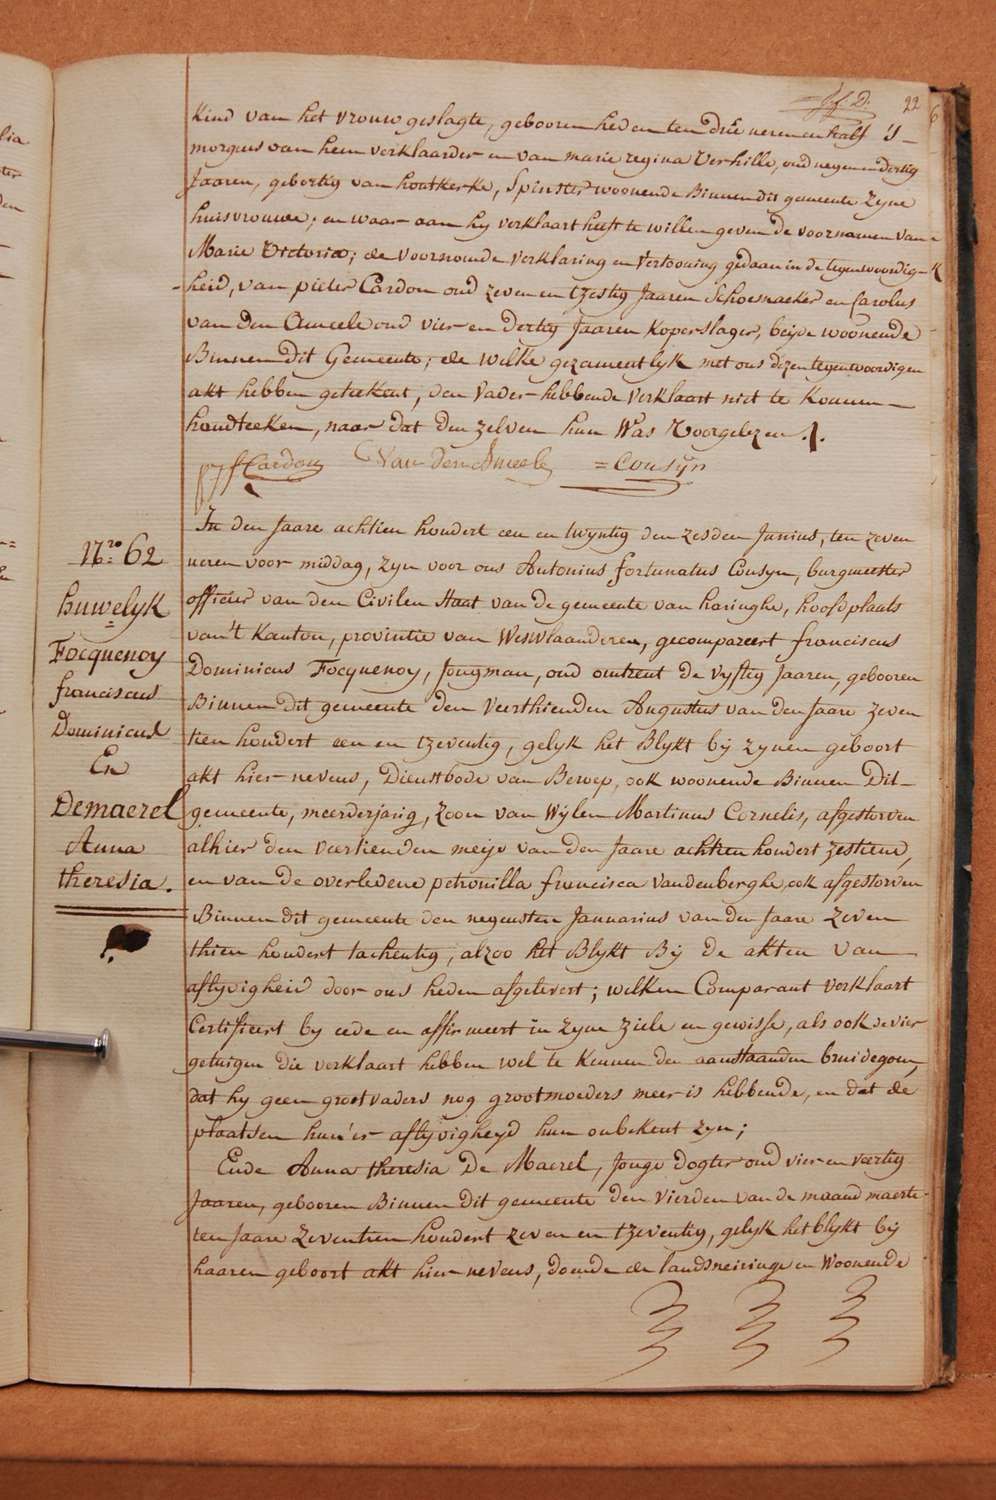 22
Kind van het vrouw geslagte, gebooren heden ten drie ueren en half 's
morgens van hem verklaarder en van marie regina Verhille, oud negen en dertig
Jaaren, gebortig van houtkerke, Spinster woonende Binnen dit gemeente zyne
huisvrouwe; en waar aan hy verklaart heeft te willen geven de voornamen van
Marie Victoria; de voornoemde verklaring en vertooning gedaan in de tegenwoordig-
heid, van pieter Cardon oud zeven en tzestig Jaaren Schoenmaeker en Carolus
van den Ameele oud vier en dertig Jaaren Koperslager, beijde woonende
Binnen dit Gemeente; de welke gezamentlyk met ons dezen tegenwoordigen
akt hebben geteekent, den Vader hebbende verklaart niet te konnen
handteeken, naar dat den zelven hun Was Voorgelezen ./.
Cardon Van den Ameele = Cousyn
N.ro 62
huwelyk
Focquenoy
franciscus
Dominicus
En
Demaerel
Anna
theresia.
In den Jaare achtien hondert een en twyntig den zesden Junius, ten zeven
ueren voor middag, zyn voor ons Antonius fortunatus Cousyn, burgmeester
officier van den Civilen Staat van de gemeente van haringhe, hoofdplaats
van 't Kanton, provintie van Westvlaanderen, gecompareert franciscus
Dominicus Focquenoy, Jongman, oud omtrent de vyftig Jaaren, gebooren
Binnen dit gemeente den Veerthienden Augustus van den Jaare zeven
tien hondert een en tzeventig, gelyk het Blykt bij zynen geboort
akt hier nevens, Dienstbode van Beroep, ook woonende Binnen Dit
gemeente, meerderjarig, zoon van Wijlen Martinus Cornelis, afgestorven
alhier den veertienden meije van den Jaare achtien hondert zestiene,
en van de overledene petronilla francisca Vandenberghe, ook afgestorven
Binnen dit gemeente den negensten Januarius van den Jaare zeven
thien hondert tachentig, alzoo het Blykt Bij de akten van
aflyvigheid door ons heden afgelevert; welken Comparant Verklaart
Certifieert by eede en affirmeert in zyne ziele en gewisse, als ook de vier
getuigen die verklaart hebben wel te kennen den aanstaanden bruidegom,
dat hy geen grootvaders nog grootmoeders meer is hebbende, en dat de
plaatsen hun'er aflyvigheyd hun onbekent zyn;
Ende Anna theresia De Maerel, Jonge dogter oud vier en veertig
Jaaren, gebooren Binnen dit gemeente den Vierden van de maand maerte
ten Jaare Zeventien hondert zeven en tzeventig, gelyk het blykt bij
haaren geboort akt hier nevens, doende de landsneiringe en Woonende